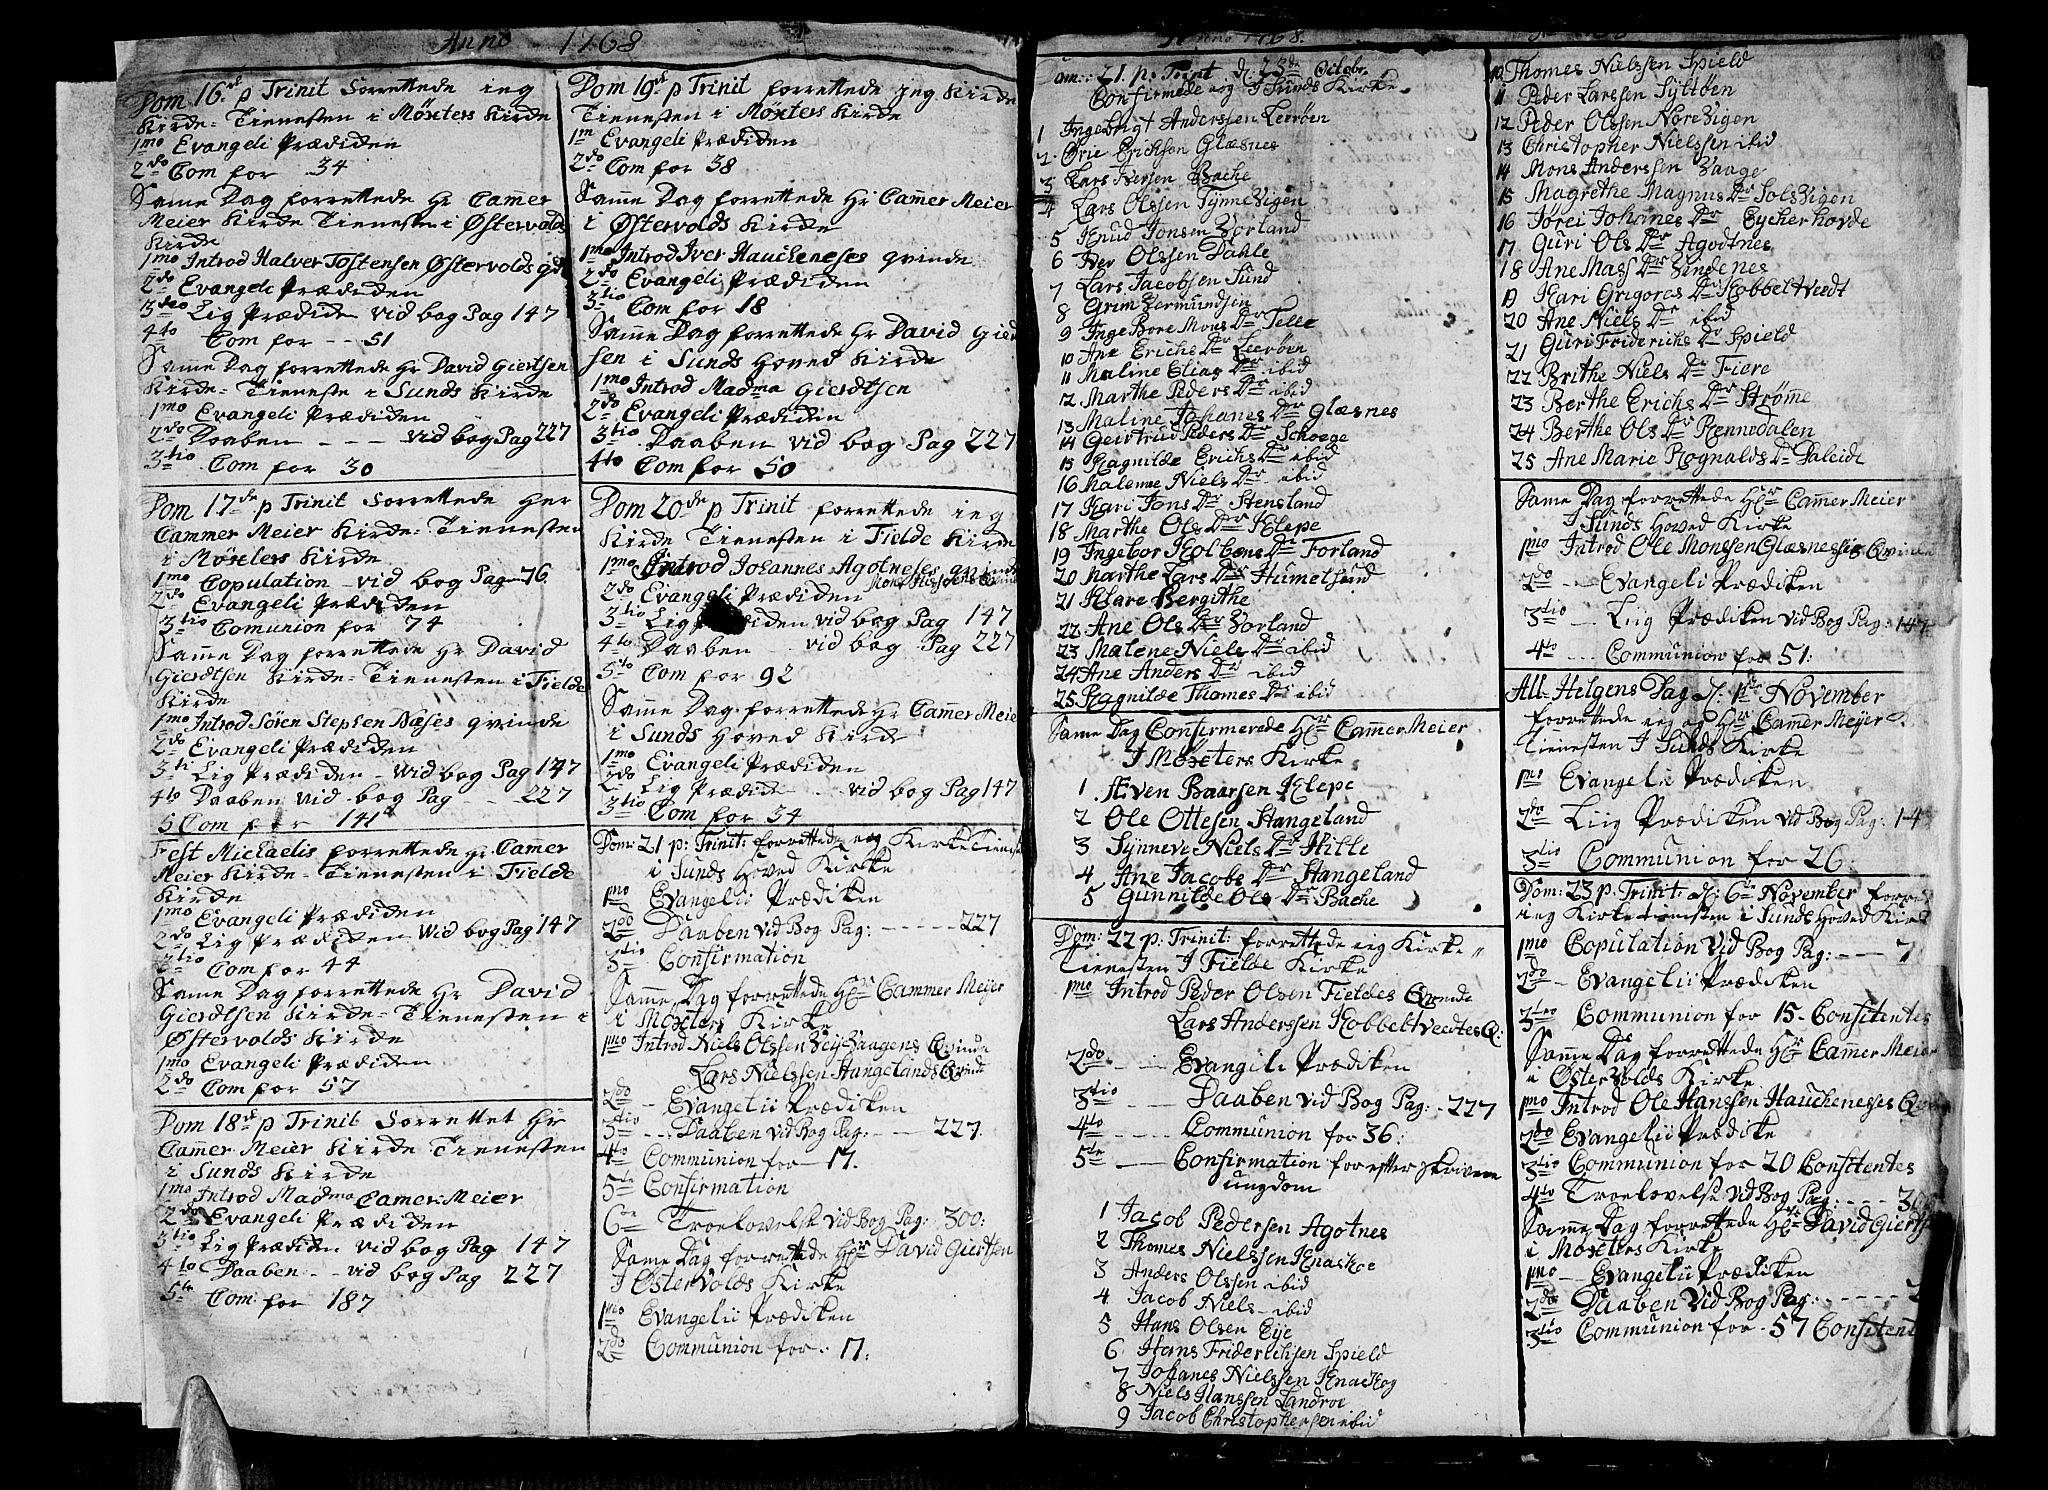 Anno 1768
Dom 16de p Trinit Forrettede ieg
Kirde=Tienesten i Møxters Kirde
1mo Evangeli Prædiden
2do Com for 34
Samme Dag forrettede Hr Cammer
Meier Kirde Tienesten i Østervolds
Kirde
1mo Introd Halver Tostensen Østervolds
2do Evangeli Prædiden
3tio Lig Prædiden vid bog Pag 147
4to Com for -- 51
Samme Dag forrettede Hr David Giertsen
Kirde=Tieneste i Sunds Kirde
1mo Evangeli Prædiden
2do Daaben --- vid bog Pag 227
3tio Com for 30
Dom 17de p Trinit Forrettede Her
Cammer Meier Kirde=Tienesten
i Møxters Kirde
1mo Copulation - vid bog Pag 76
2do Evangeli Prædiden
3tio Comunion for 74
Samme Dag forrettede Hr David
Gierdtsen Kirde=Tienesten i Fielde
Kirde
1mo Introd Søren Stephsen Næses qvinde
2do Evangeli Prædiden
3ti Lig Prædiden - Wid bog Pag 147
4to Daaben vid bog Pag -- 227
5 Com for 141
Fest Michaelis forrettede Hr Camer
Meier Kirde=Tienesten i Fielde
Kirde
1mo Evangeli Prædiden
2do Lig Prædiden Wid bog Pag 147
3tio Com for 44
Same Dag forrettede Hr David
Gierdtsen Kirde=Tienesten i
Østervolds Kirde
1mo Evangeli Prædiden
2do Com for 57
Dom 18de p Trinit Forrettet Hr
Cammer Meier Kirde Tienesten
i Sunds Kirde
1mo Introd Madma Camer Meier
2do Evangeli Prædiden
3tio Lig Prædiden vid bog Pag 147
4to Daaben -- vid bog Pag 227
5te Com for 187
Dom 19de p Trinit forrettede jeg Kirde
Tienesten i Møxters Kirde
1m Evangeli Prædiden
2do Com for 38
Samme Dag forrettede Hr Cammer Meier
i Østervolds Kirde
1mo Introd Iver Haucheneses qvinde
2do Evangeli Prædiden
3tio Com for 18
Samme Dag forrettede Hr David Gierdt
sen i Sunds Hoved Kirde
1mo Introd Madma Gierdtsen
2do Evangeli Prædiden
3tio Daaben vid bog Pag 227
4to Com for 50
Dom 20de p Trinit forrettede ieg
Kirde Tienesten i Fielde Kirde
1mo Introd Johannes Agotneses qvinde
2do Evangeli Prædiden
3tio Lig Prædiden vid bog Pag 147
4to Daaben -- vid bog Pag 227
5to Com for 92
Samme Dag forrettede Hr Cammer Meie
i Sunds Hoved Kirde
1mo Evangeli Prædiden
2do Lig Prædiden -- vid bog Pag 147
3tio Com for 34
Dom: 21 p: Trinit: forrettede ieg Kirke Tienes
i Sunds Hoved Kirke
1mo Evangelii Prædiken
2do Daaben vid Bog Pag: ----- 227
3tio Confirmation
Samme Dag forrettede Hr Cammer Meijer
i Moxters Kirke
1mo Introd Niels Olssen Veÿ Vaagens Qvinde
Lars Nielssen Hangelands Qvinde
2do - Evangelii Prædiken
3tio --- Daaben vid Bog Pag: --- 227.
4to Communion for 17.
5te Confirmation
6te Troelovelse vid Bog Pag: 300:
Same Dag forrettede Hr David Giertsen
I Østervolds Kirke
1mo Evangelii Prædiken
2do Communion for: 17:
Anno 1768.
Dom: 21. p: Trint d: 23de Octobr
Confirmede ieg I Sunds Kirke
1 Ingebrigt Anderssen Leerøen
2 Orie Erichsen Glæsnes
3 Lars Iversen Bache
4 Lars Olssen Tynne Vigen
5 Knud Jonsen Vorland
6 Iver Olssen Dahle
7 Lars Jacobsen Sund
8 Grim Vermundsen
9 Inge Bore Mons Dr Telle
10 Ane Erichs Dr Leerøen
11 Maline Elias Dr ibid
12 Marthe Peders Dr ibid
13 Maline Johanes Dr Glæsnes
14 Geirtrud Peders Dr Schoege
15 Ragnilde Erichs Dr ibid
16 Malene Niels Dr ibid
17 Kari Jons Dr Stensland
18 Marthe Ols Dr Klepe
19 Ingebor Kolbens Dr Forland
20 Marthe Lars Dr Humelsund
21 Klare Bergithe
22 Ane Ols Dr Vorland
23 Malene Niels Dr ibid
24 Ane Anders Dr ibid
25 Ragnilde Thomes Dr ibid
Same Dag Confirmerede Hr Cammer Meier
I Møxters Kirke
1 Even Baarsen Klepe
2 Ole Ottesen Stangeland
3 Synneve Niels Dr Hille
4 Ane Jacobs Dr Stangeland
5 Gunnilde Ols Dr Bache
Dom: 22 p: Trinit: forrettede ieg Kirke
Tienesten I Fielde Kirke
1mo Introd Peder Olsen Fieldes Qvinde
Lars Anderssen Kobbeltvedtes Q:
2do --- Evangili Prædiken
3tio --- Daaben vid Bog Pag: - 227
4to ---- Communion for 36:
5te --- Confirmation for efter skrivene
ungdom
1 Jacob Pedersen Agotnes
2 Thomes Nielssen Knaskoe
3 Anders Olssen ibid
4 Jacob Niels - ibid
5 Hans Olsen Eije
6 Hans Friderichsen Spield
7 Johanes Nielssen Knaskog
8 Niels Hanssen Landroe
9 Jacob Christophersen ibid
10 Thomes Nielssen Spield
11 Peder Larssen Syltøen
12 Peder Olssen Nore Vigen
13 Christopher Nielssen ibid
14 Mons Anderssen Vaage
15 Magrethe Magnus Dr Sols Vigen
16 Jørei Johanes Dr Eycherhovde
17 Guri Ols Dr Agodtnes
18 Ane Mass Dr Vindenes
19 Kari Grigores Dr Kobbeltvedt
20 Ane Niels Dr ibid
21 Guri Friderichs Dr Spield
22 Brithe Niels Dr Fiere
23 Berthe Erichs Dr Strømme
24 Berthe Ols Dr Rennedalen
25 Ane Marie Rognalds Dr Daleidt
Same Dag forrettede Hr Cammer Meier
I Sunds Hoved Kirke
1mo Introd Ole Monssen Glæsneses Qvinde
2do -- Evangelii Prædiken
3tio --- Liig Prædiken vid Bog Pag: 147
4to --- Communion for 51:
All Helgens Dag d: 1te November
forrettede ieg og Hr Camer Meyer
Tienesten I Sunds Kirke
1mo Evangelii Prædiken
2do Liig Prædiken vid Bog Pag: 14
3tio Communion for 26:
Dom: 23 p. Trinit: d: 6te November forre
ieg Kirketienesten i Sunds Hoved Kirk
1mo Copulation vid Bog Pag: --- 7
2do -- Evangelii Prædiken
3tio Communion for 15 - Confitentes
Samme Dag forrettede Hr Cammer Meier
i Øster Volds Kirke
1mo Introd Ole Hanssen Haucheneses Qv
2do Evangelii Prædike
3tio Communion for 20 Confitentes
4to Troelovelse vid Bog Pag: --- 3
Samme Dag forrettede Hr David Gierts
i Moxters Kirke
1mo -- Evangelii Prædiken
2do Daaben vid Bog Pag: -----
3tio Communion for 57 Confitent